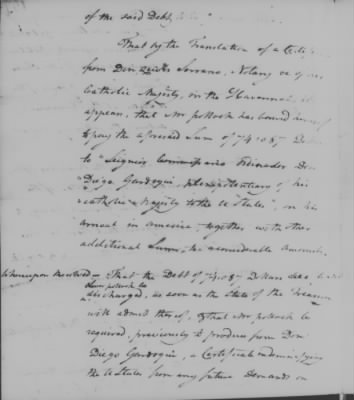 of the said Debt,
That by the Translation of a Certif
from Don Serrano, Notary of
Catholic Majesty, in the Havanna, it
appears, that Mr Pollock has bound himself
to pay the aforesaid Sum of 74.087
to "Seignior Don
"Diego Gardoqui, plenipotentiary of his
"catholic Majesty to the U States", on his
arrival in America together with other
additional Sums, to a considerable Amount.
Whereupon Resolved — That the Debt of 74.087 Dollars
due pollock be
discharged, as soon as the state of the Treasury
will admit thereof, & that Mr pollock be
required, previously to produce from Don
Diego Gardoqui, a Certificate indemnifying
the U States from any future Demands on